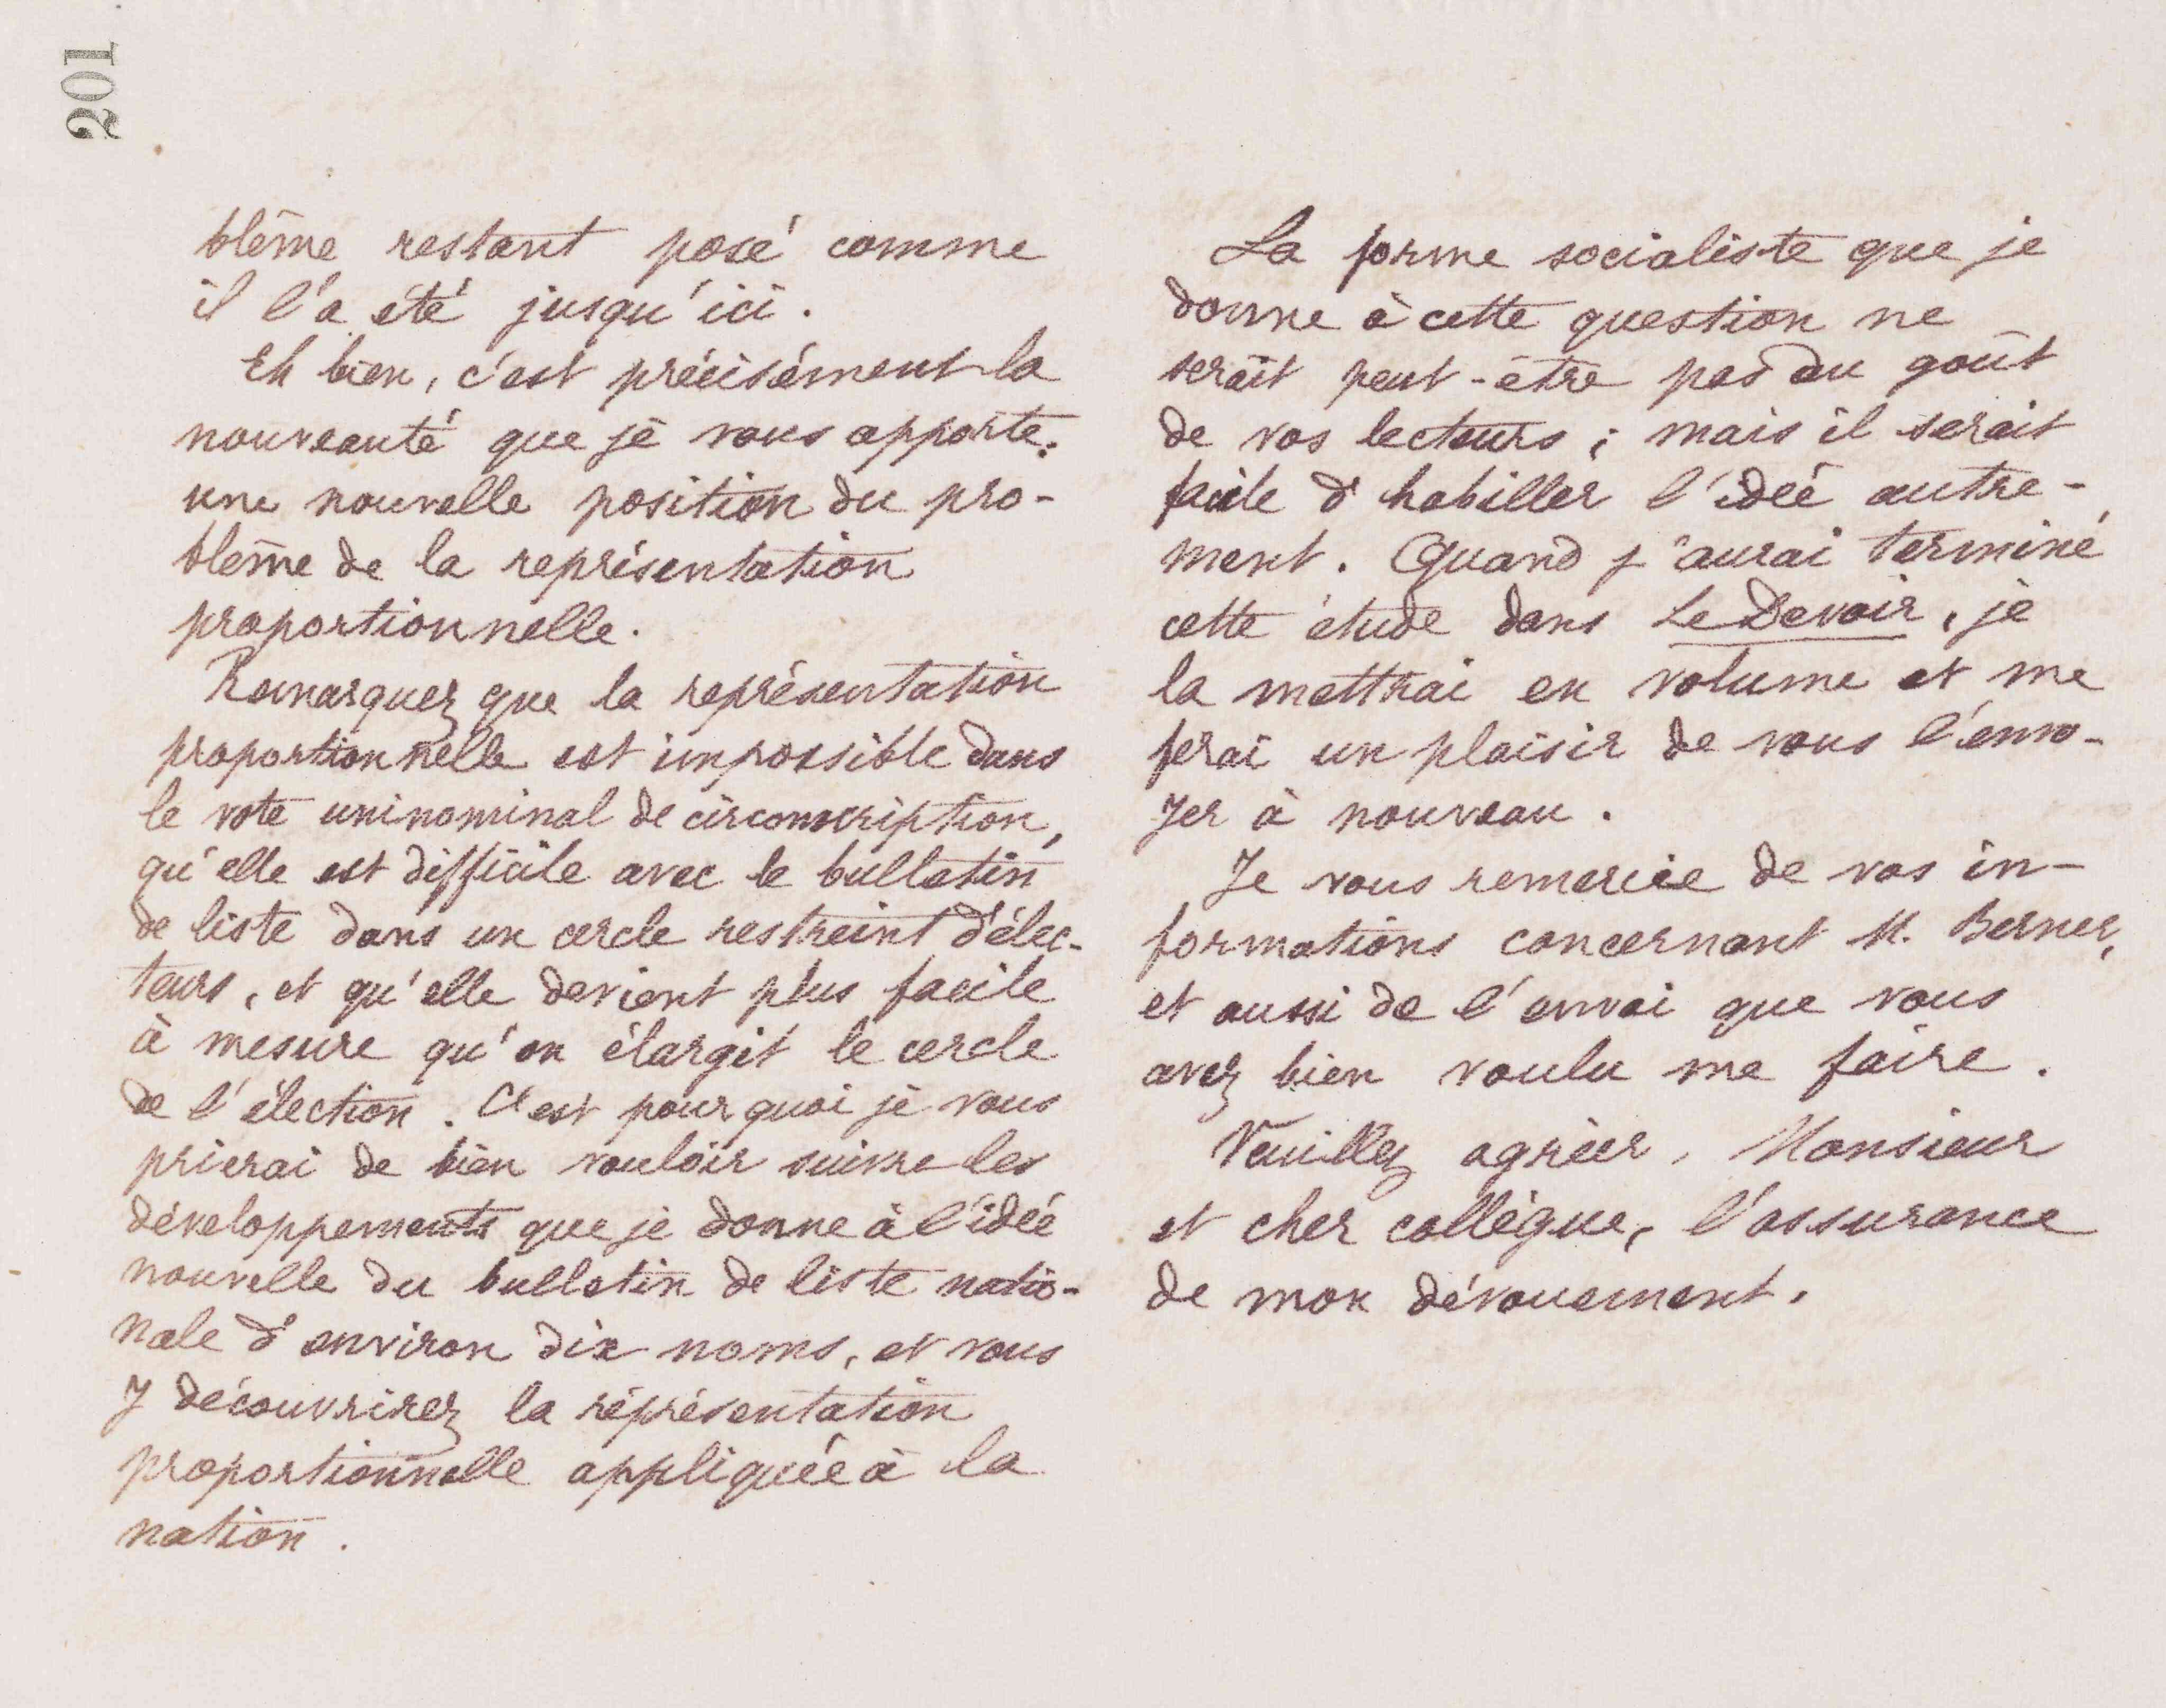 201
blême restant posé comme
il l'a été jusqu'ici.
Eh bien, c'est précisément la
nouveauté que je vous apporte:
une nouvelle position du pro-
blême de la représentation
proportionnelle.
Remarquez que la représentation
proportionnelle est impossible dans
le vote uninominal de circonscription,
qu'elle est difficile avec le bulletin
de liste dans un cercle restreint d'élec-
teurs, et qu'elle devient plus facile
à mesure qu'on élargit le cercle
de l'élection. C'est pourquoi je vous
prierai de bien vouloir suivre les
développements que je donne à l'idée
nouvelle du bulletin de liste natio-
nale d'environ dix noms, et vous
y découvrirez la représentation
proportionnelle appliquée à la
nation.
La forme socialiste que je
donne à cette question ne
serait peut-être pas du goût
de vos lecteurs; mais il serait
facile d'habiller l'idée autre-
ment. Quand j'aurai terminé
cette étude dans Le Devoir, je
la mettrai en volume et me
ferai un plaisir de vous l'envo-
yer à nouveau.
Je vous remercie de vos in-
formations concernant M. Berner,
et aussi de l'envoi que vous
avez bien voulu me faire.
Veuillez agréer, Monsieur
et cher collègue, l'assurance
de mon dévouement.